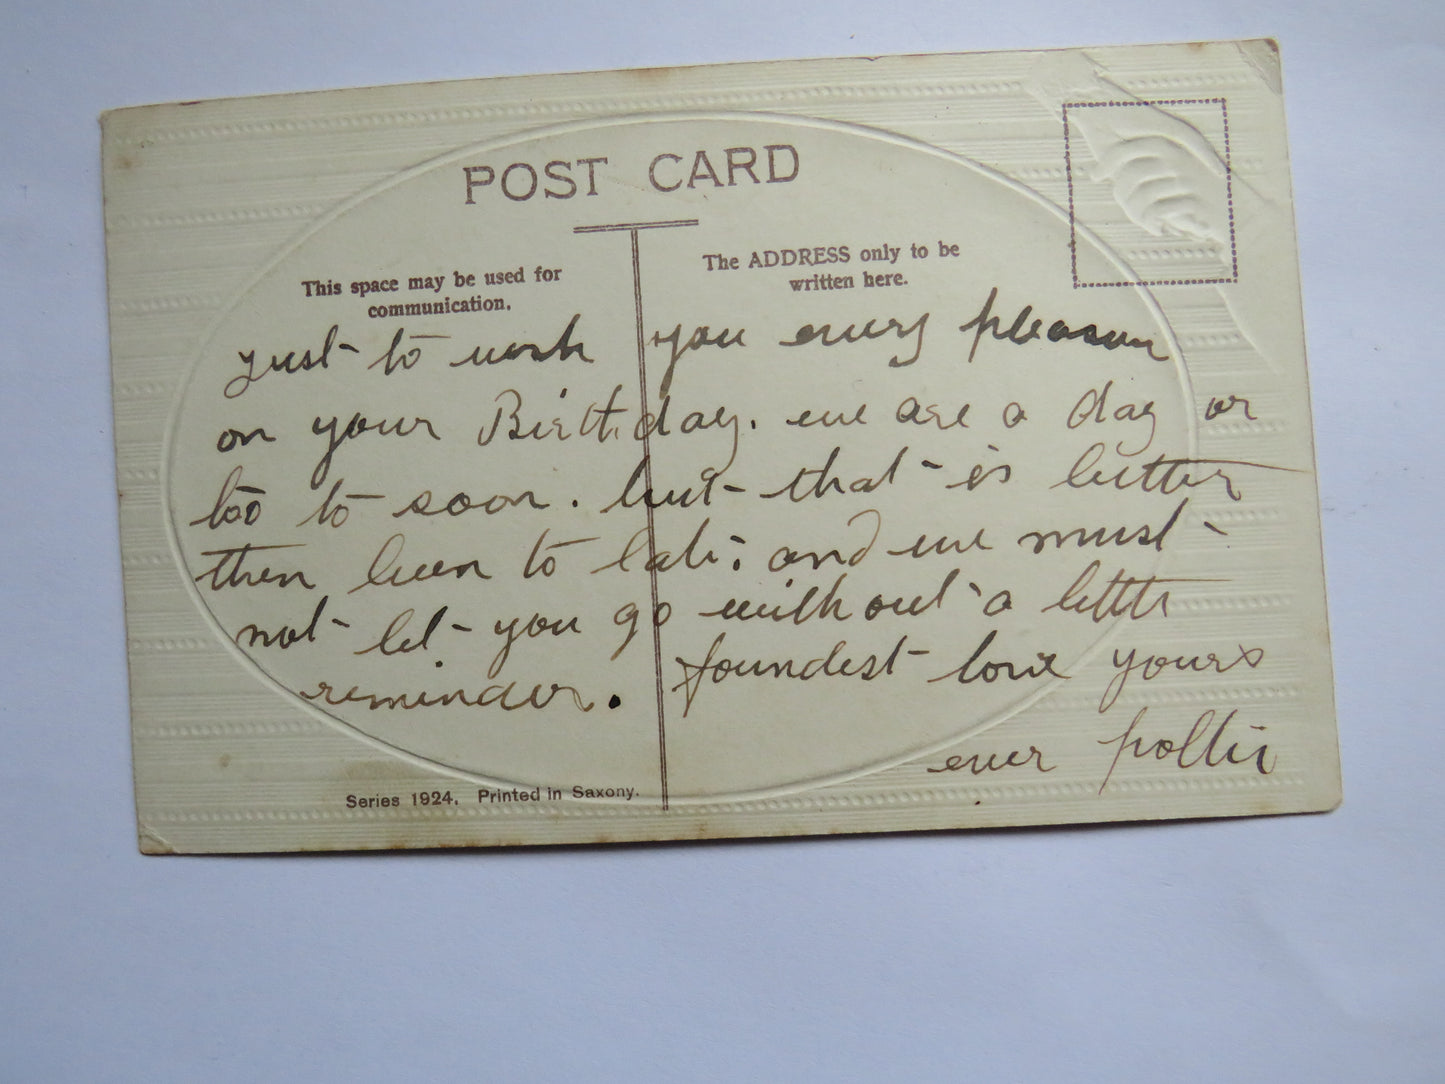 POST CARD
This space may be used for
communication.
The ADDRESS only to be
written here.
just to wish you every pleasur
on your Birthday. we are a day or
too to soon. but that is better
then been to late. and we must
not let you go without a little
reminder. foundest love yours
ever pollie
Series 1924. Printed in Saxony.